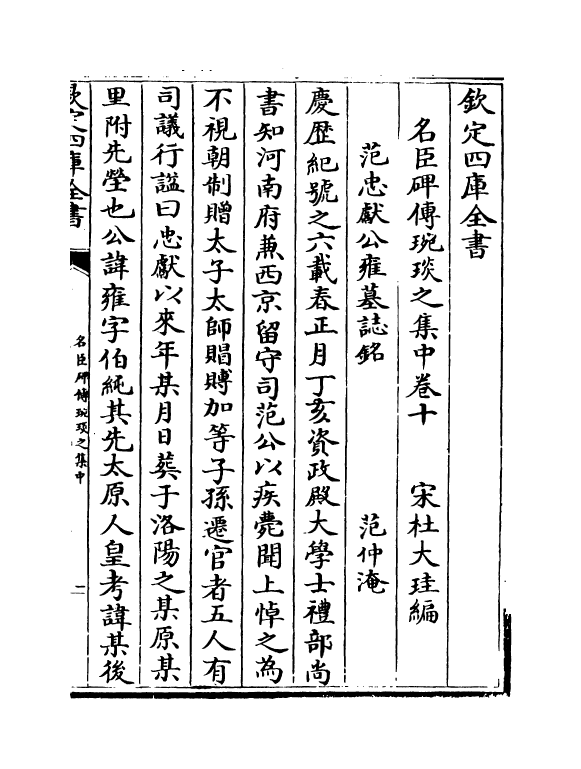 欽定四庫全書
名臣碑傳琬琰之集中卷十　宋杜大珪編
范忠獻公雍墓誌銘　范仲淹
慶歴紀號之六載春正月丁亥資政殿大學士禮部尚
書知河南府兼西京留守司范公以疾薨聞上悼之為
不視朝制贈太子太師賵賻加等子孫遷官者五人有
司議行謚曰忠獻以來年某月日葬于洛陽之某原某
里附先塋也公諱雍字伯純其先太原人皇考諱某後
欽定四庫全書
名臣碑傳琬琰之集中
二